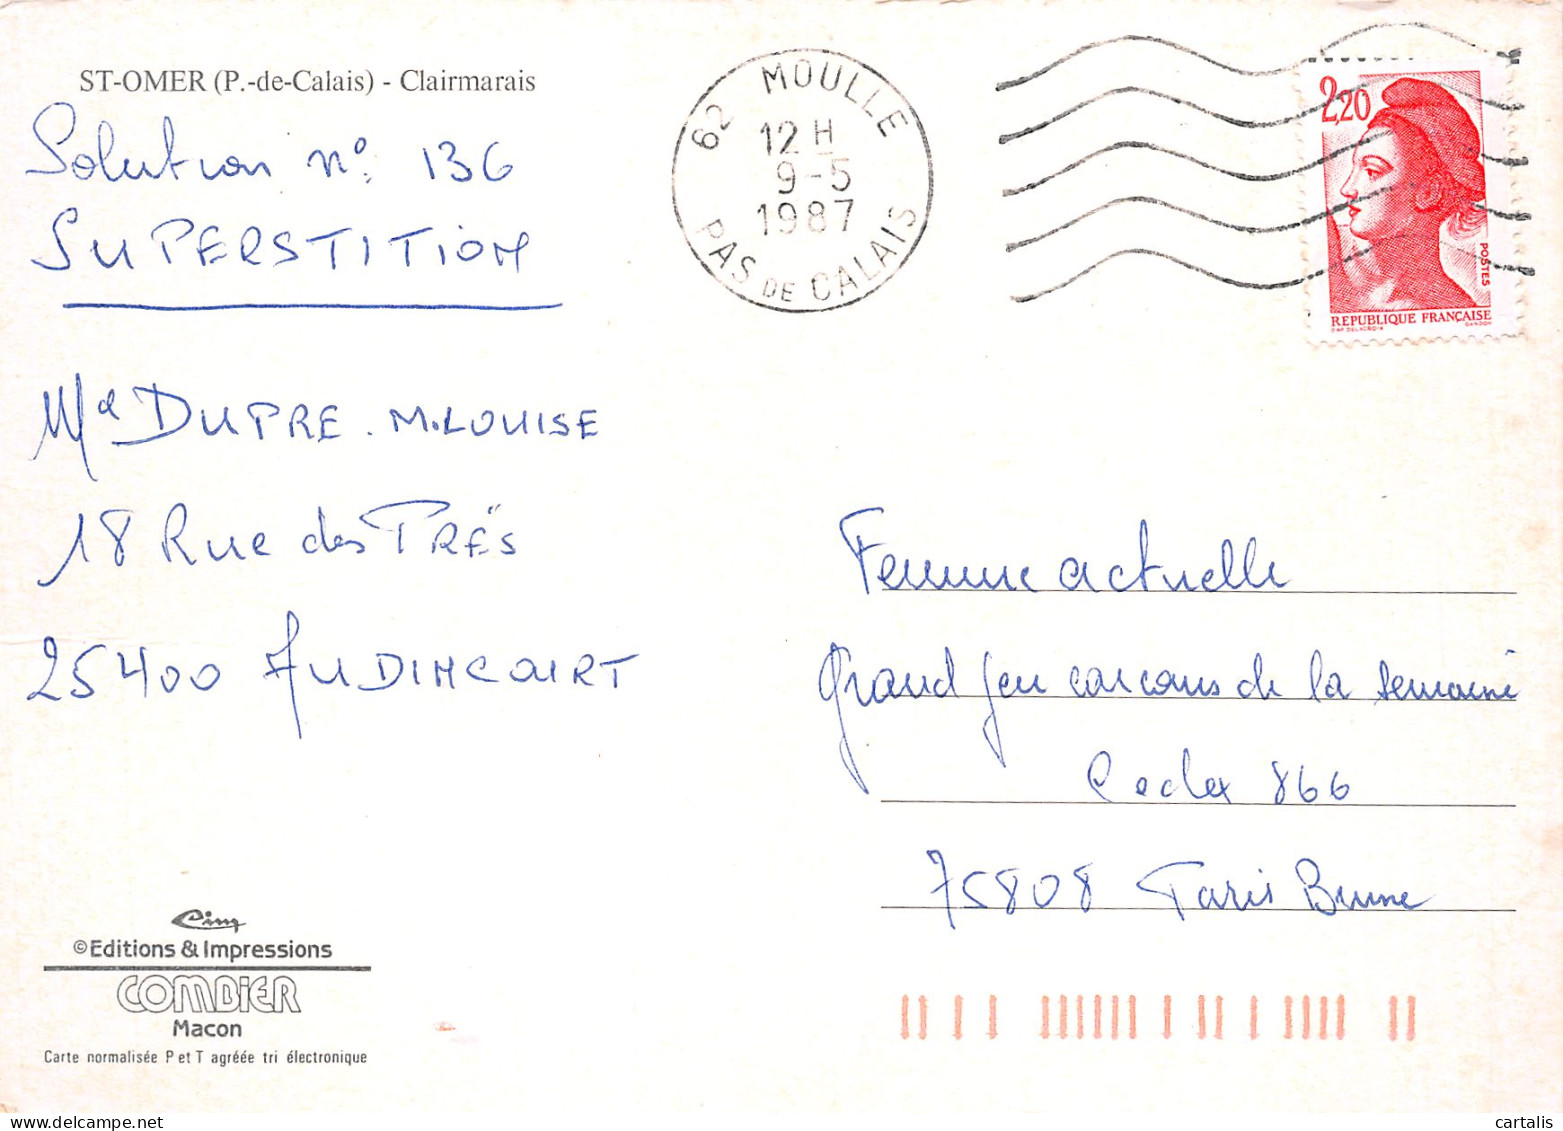 ST-OMER (P.-de-Calais) - Clairmarais
Solution n°: 136
SUPERSTITION
Md DUPRE. M.LOUISE
18 Rue des PRÉS
25400 AUDINCOURT
62 MOULLE
12 H
9-5
1987
PAS DE CALAIS
2,20
POSTES
REPUBLIQUE FRANÇAISE
D'AP. DELACROIX
GANDON
Femme actuelle
Grand Jeu concours de la semaine
Cedex 866
75808 Paris Brune
Cim
©Editions & Impressions
COMBIER
Macon
Carte normalisée P et T agréée tri électronique
www.delcampe.net
cartalis